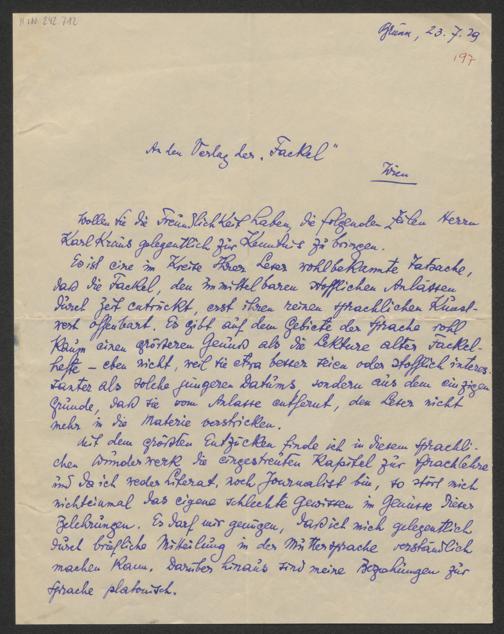 H.I.N. 242.712
Brünn, 23.7.29
197
An den Verlag der „Fackel"
Wien
Wollen Sie die Freundlichkeit haben, die folgenden Zeilen Herrn
Karl Kraus gelegentlich zur Kenntnis zu bringen.
Es ist eine im Kreise Ihrer Leser wohlbekannte Tatsache,
dass die Fackel, den unmittelbaren stofflichen Anlässen
durch Zeit entrückt, erst ihren reinen sprachlichen Kunst-
wert offenbart. Es gibt auf dem Gebiete der Sprache wohl
kaum einen grösseren Genuss als die Lektüre alter Fackel-
hefte – eben nicht, weil sie etwa besser seien oder stofflich interes-
santer als solche jüngeren Datums, sondern aus dem einzigen
Grunde, dass sie vom Anlasse entfernt, den Leser nicht
mehr in die Materie verstricken.
Mit dem größten Entzücken finde ich in diesem sprachli-
chen Wunderwerk die eingestreuten Kapitel zur Sprachlehre
und da ich weder Literat, noch Journalist bin, so stört mich
nichteinmal das eigene schlechte Gewissen im Genusse dieser
Belehrungen. Es darf mir genügen, dass ich mich gelegentlich
durch briefliche Mitteilung in der Muttersprache verständlich
machen kann. Darüber hinaus sind meine Beziehungen zur
Sprache platonisch.